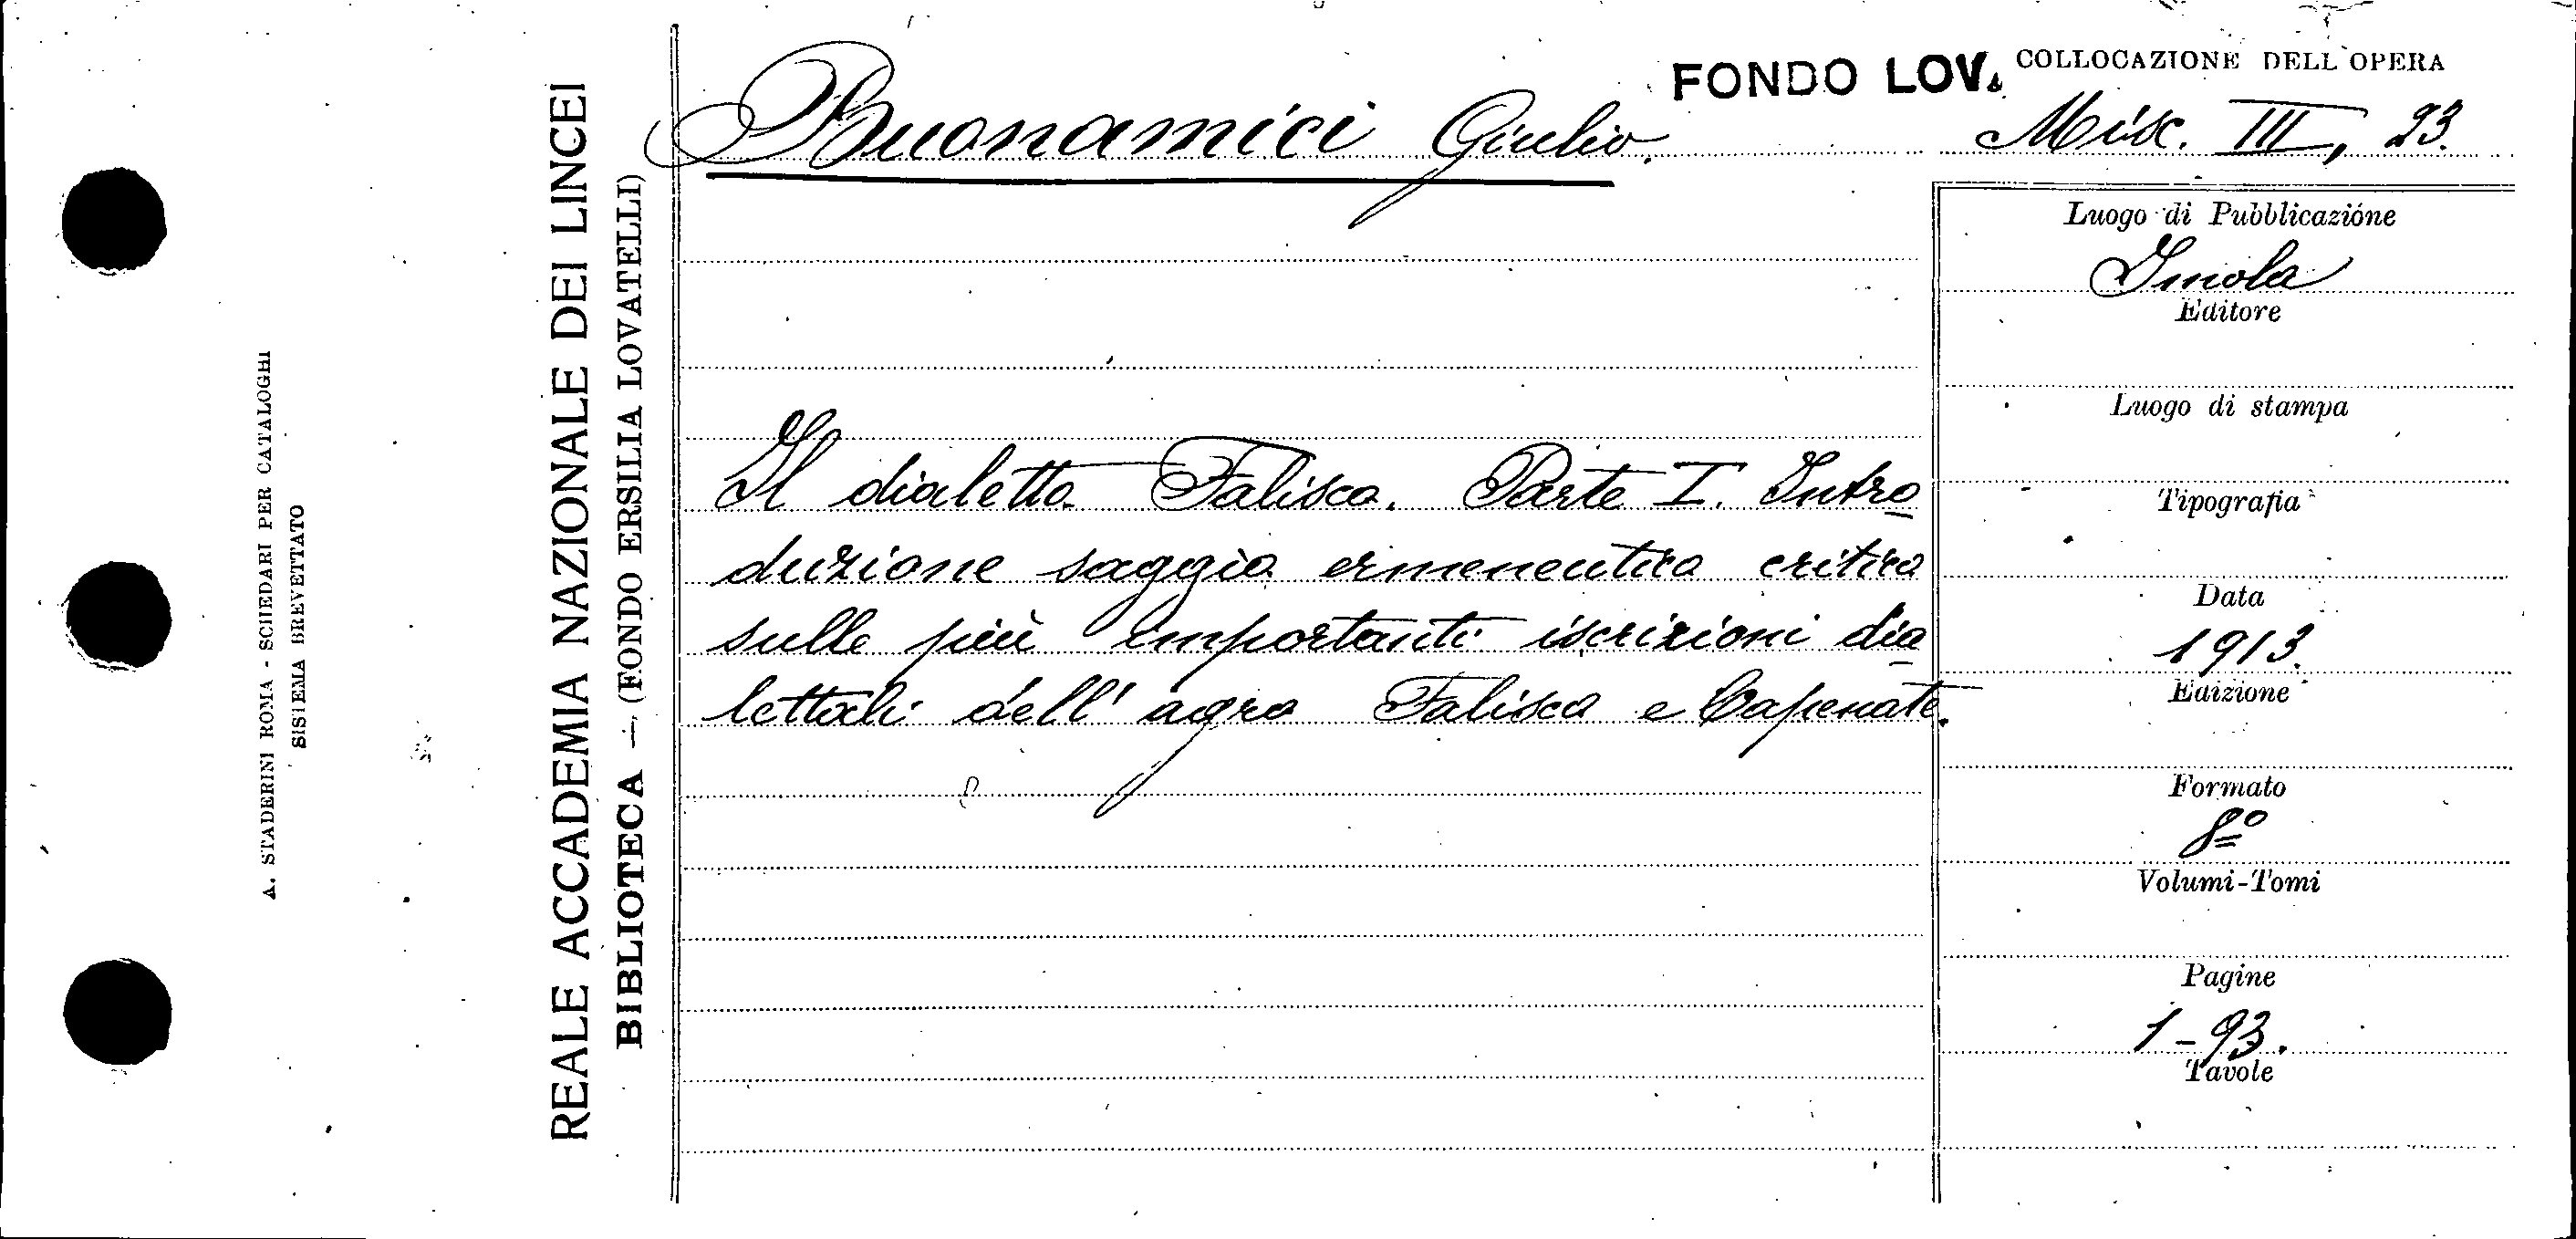 A. STADERINI ROMA - SCHEDARI PER CATALOGHI
SISTEMA BREVETTATO
REALE ACCADEMIA NAZIONALE DEI LINCEI
BIBLIOTECA - (FONDO ERSILIA LOVATELLI)
Buonamici Giulio.
FONDO LOV.
COLLOCAZIONE DELL'OPERA
Misc. III, 23.
Il dialetto Falisco. Parte I. Intro
duzione saggio ermeneutico critico
sulle più importanti iscrizioni dia
lettali dell' agro Falisco e Capenate.
Luogo di Pubblicazione
Imola
Editore
Luogo di stampa
Tipografia
Data
1913.
Edizione
Formato
8º
Volumi-Tomi
Pagine
1-93.
Tavole